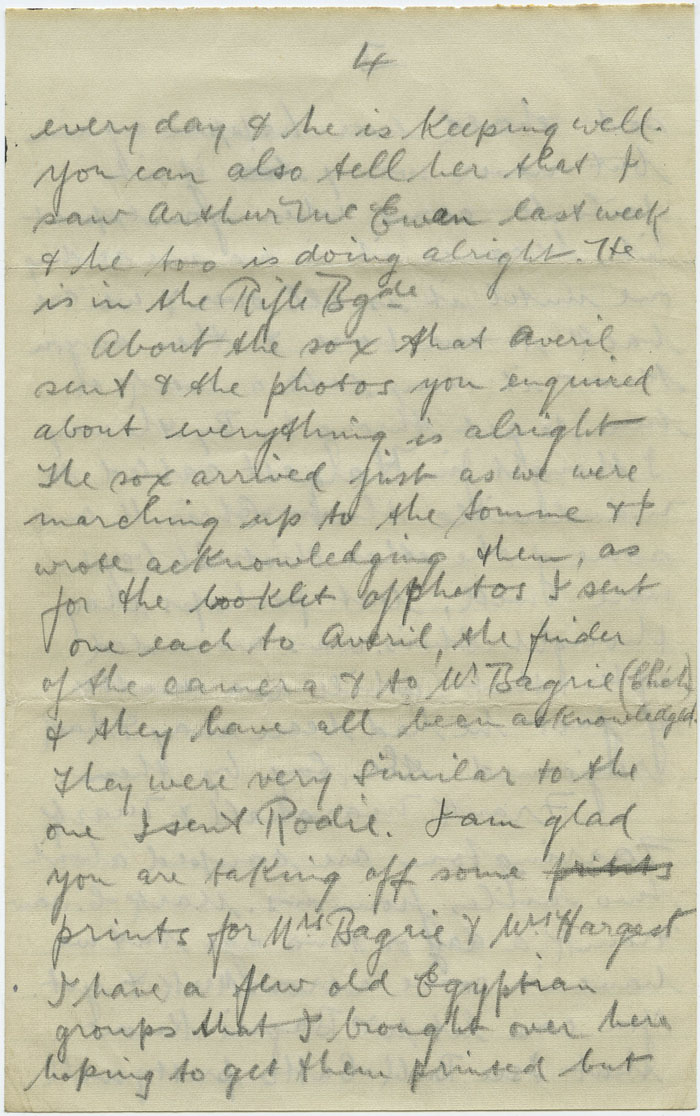 4
every day & he is keeping well.
You can also tell her that I
saw Arthur Mc Ewan last week
& he too is doing alright. He
is in the Rifle Bgde
About the sox that Averil
sent & the photos you enquired
about everything is alright
The sox arrived just as we were
marching up to the Somme & I
wrote acknowledging them, as
for the booklet of photos I sent
one each to Averil, the finder
of the camera & to Mr Bagrie (
& they have all been acknowledged.
They were very similar to the
one I sent Rodie. I am glad
you are taking off some prints
prints for Mrs Bagrie & Mrs Hargest
I have a few old Egyptian
groups that I brought over here
hoping to get them printed but